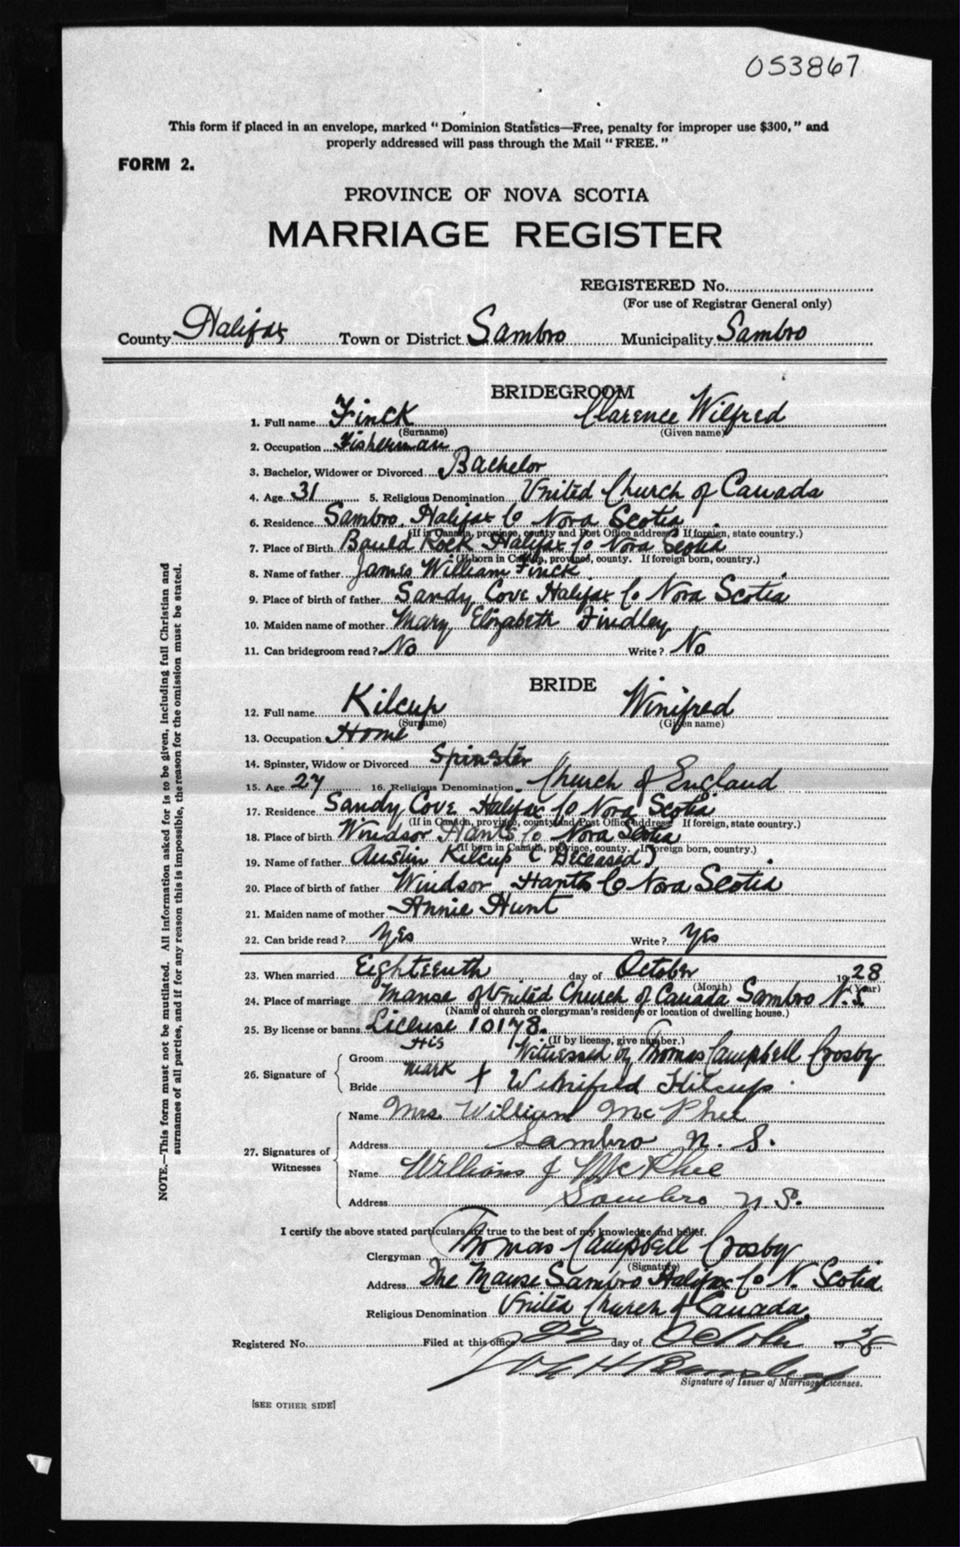 053867
This form if placed in an envelope, marked "Dominion Statistics—Free, penalty for improper use $300," and
properly addressed will pass through the Mail "FREE."
FORM 2.
PROVINCE OF NOVA SCOTIA
MARRIAGE REGISTER
REGISTERED No.
(For use of Registrar General only)
County Halifax Town or District Sambro Municipality Sambro
BRIDEGROOM
1. Full name Finck Clarence Wilfred
(Surname) (Given name)
2. Occupation Fisherman
3. Bachelor, Widower or Divorced Bachelor
4. Age 31 5. Religious Denomination United Church of Canada
6. Residence Sambro, Halifax Co Nova Scotia
(If in Canada, province, county and Post Office address? If foreign, state country.)
7. Place of Birth Bauld Rock Halifax Co Nova Scotia
(If born in Canada, province, county. If foreign born, country.)
8. Name of father James William Finck
9. Place of birth of father Sandy Cove Halifax Co Nova Scotia
10. Maiden name of mother Mary Elizabeth Findley
11. Can bridegroom read? No Write? No
BRIDE
12. Full name Kilcup Winifred
(Surname) (Given name)
13. Occupation Home
14. Spinster, Widow or Divorced Spinster
15. Age 27 16. Religious Denomination Church of England
17. Residence Sandy Cove Halifax Co Nova Scotia
(If in Canada, province, county and Post Office address? If foreign, state country.)
18. Place of birth Windsor Hants Co Nova Scotia
(If born in Canada, province, county. If foreign born, country.)
19. Name of father Austin Kilcup (Deceased)
20. Place of birth of father Windsor Hants Co Nova Scotia
21. Maiden name of mother Annie Hunt
22. Can bride read? Yes Write? Yes
23. When married Eighteenth day of October 1928
(Month) (Year)
24. Place of marriage Manse of United Church of Canada Sambro N.S
(Name of church or clergyman's residence or location of dwelling house.)
25. By license or banns License 10178.
(If by license, give number.)
26. Signature of
Groom His Witnessed by Thomas Campbell Crosby
Bride mark X Winifield
27. Signatures of Witnesses
Name Mrs. William McPhee
Address Sambro N. S.
Name William J McPhee
Address Sambro N.S.
I certify the above stated particulars are true to the best of my knowledge and belief.
Clergyman Thomas Campbell Crosby
(Signature)
Address The Manse Sambro Halifax Co N. Scotia
Religious Denomination United Church of Canada
Registered No. Filed at this office 22 day of October 1928
Signature of Issuer of Marriage Licenses.
[SEE OTHER SIDE]
NOTE.—This form must not be mutilated. All information asked for is to be given, including full Christian and
surnames of all parties, and if for any reason this is impossible, the reason for the omission must be stated.